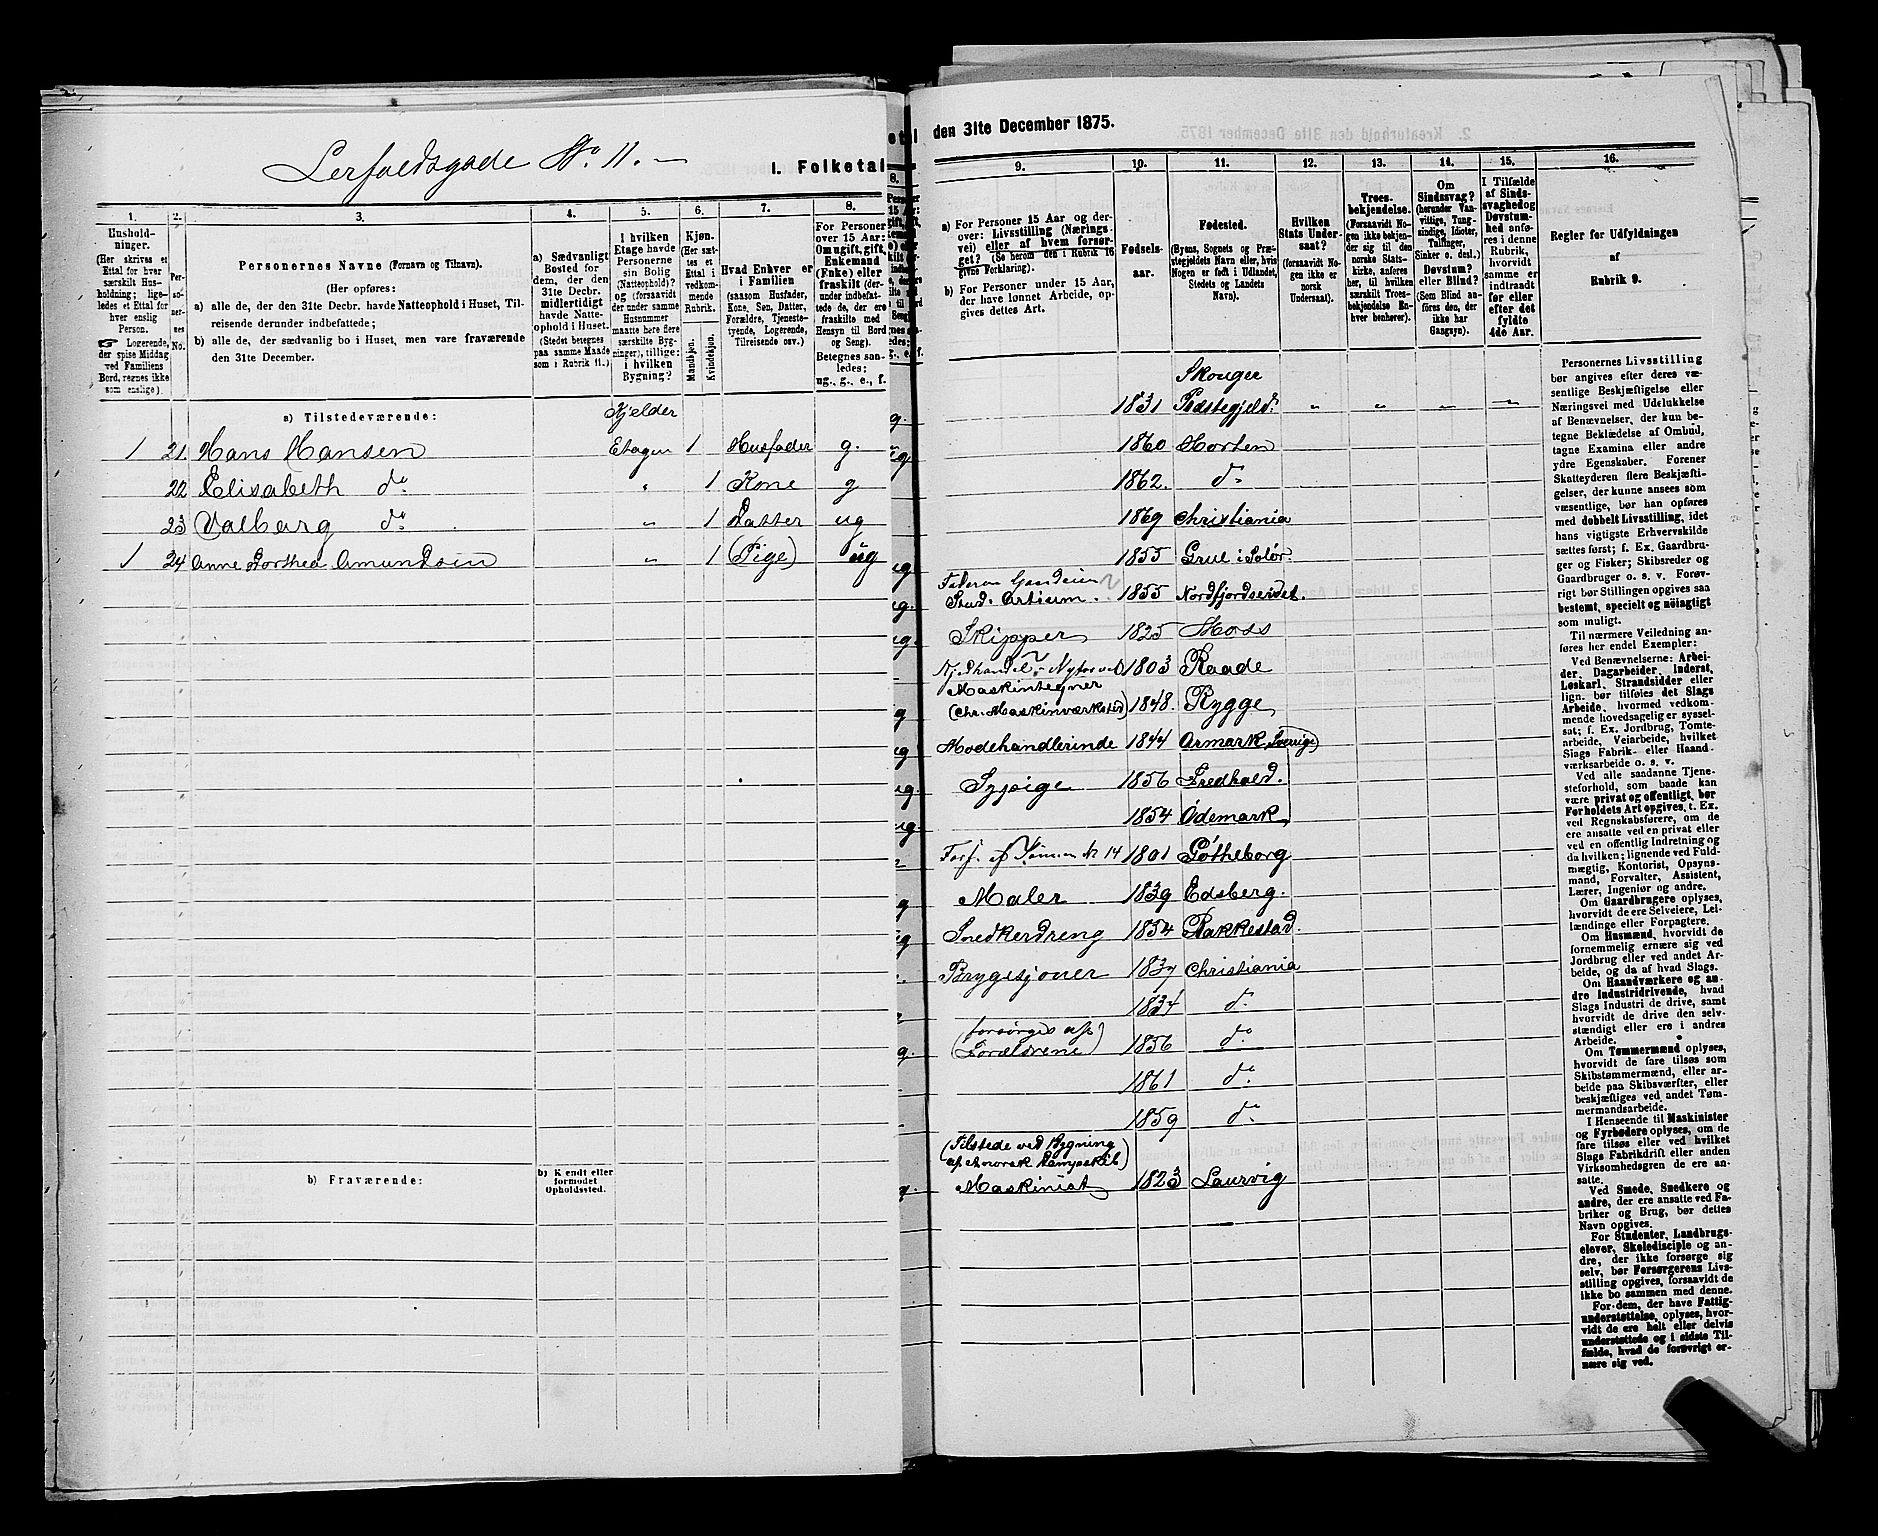 Lerfaldsgade No. 11.
I. Folketal
1. 2. 3. 4. 5. 6. 7. 8.
Hushold-
ninger.
(Her skrives et
Ettal for hver
særskilt Hus-
holdning; lige-
ledes et Ettal for
hver enslig
Person.
☞ Logerende,
der spise Middag
ved Familiens
Bord, regnes ikke
som enslige).
Per-
so-
ner-
nes
No.
Personernes Navne (Fornavn og Tilnavn).
(Her opføres:
a) alle de, der den 31te Decbr. havde Natteophold i Huset, Til-
reisende derunder indbefattede;
b) alle de, der sædvanlig bo i Huset, men vare fraværende
den 31te December.
a) Sædvanligt
Bosted for
dem, der den
31te Decbr.
midlertidigt
havde Natte-
ophold i Huset.
(Stedet betegnes
paa samme Maade
som i Rubrik 11.)
I hvilken
Etage havde
Personerne
sin Bolig
(Natteophold)?
og (forsaavidt
der under samme
Husnummer
maatte høre flere
særskilte Byg-
ninger), tillige:
i hvilken
Bygning?
Kjøn.
(Her sæt-
tes et
Ettal i
vedkom-
mende
Rubrik.
Mandkjøn.
Kvindekjøn.
Hvad Enhver er
i Familien
(saasom Husfader,
Kone, Søn, Datter,
Forældre, Tjeneste-
tyende, Logerende,
Tilreisende osv.)
For Personer
over 15 Aar:
Om ugift, gift,
Enkemand
(Enke) eller
fraskilt (der-
under indbefat-
tede de, der ere
fraskilte med
Hensyn til Bord
og Seng).
Betegnes saa-
ledes:
ug., g., e., f.
a) Tilstedeværende: Kjelder
1 21 Hans Hansen Etagen 1 Husfader g.
22 Elisabeth do " 1 Kone g
23 Valborg do. " 1 Datter ug
1 24 Anne Dorthea Amundsen " 1 (Pige) ug
b) Fraværende:
b) Kjendt eller
formodet
Opholdssted.
den 31te December 1875.
9. 10. 11. 12. 13. 14. 15. 16.
a) For Personer 15 Aar og der-
over: Livsstilling (Nærings-
vei) eller af hvem forsør-
get? (Se herom den i Rubrik 16
givne Forklaring).
b) For Personer under 15 Aar,
der have lønnet Arbeide, op-
gives dettes Art.
Fødsels-
aar.
Fødested.
(Byens, Sognets og Præ-
stegjeldets Navn eller, hvis
Nogen er født i Udlandet,
Stedets og Landets
Navn).
Hvilken
Stats Under-
saat?
(forsaavidt No-
gen ikke er
norsk
Undersaat).
Troes-
bekjendelse.
(Forsaavidt No-
gen ikke bekjen-
der sig til den
norske Stats-
kirke, anføres
her, til hvilken
særskilt Troes-
bekjendelse En-
hver henhører).
Om
Sindssvag?
(herunder Van-
vittige, Tung-
sindige, Idioter,
Tullinger,
Sinker o. desl.)
Døvstum?
eller Blind?
(Som Blind an-
føres den, der
ikke har
Gangsyn).
I Tilfælde
af Sinds-
svaghed og
Døvstum-
hed anfø-
res i denne
Rubrik,
hvorvidt
samme er
indtraadt
før eller
efter det
fyldte
4de Aar.
Regler for Udfyldningen
af
Rubrik 9.
Skouger
1831 Præstegjeld. " " " "
1860 Horten
1862. do
1869 Christiania
1855 Grue i Solør.
Stud. Artium. 1855 Nordfjordseidet.
Skipper 1825 Moss
1803 Raade
Maskintegner
(Chr. Maskinværksted) 1848. Rygge
Modehandlerinde 1844 Armark, Sverige)
Sypige 1856 Fredhald.
1854 Ødemark
Fors. af Sønnen No 14 1801 Gøtheborg
Maler 1839 Edsberg.
Snedkerdreng 1854 Rakkestad.
Bryggesjouer 1837 Christiania
1834 do
(forsørges af
Forældrene) 1856 do
1861 do
1859 do
(Tilstede ved Bygning
af Dampskib)
Maskinist 1823 Laurvig
Personernes Livsstilling
bør angives efter deres væ-
sentlige Beskjæftigelse eller
Næringsvei med Udelukkelse
af Benævnelser, der kun be-
tegne Beklædelse af Ombud,
tagne Examina eller andre
ydre Egenskaber. Forener
Skatteyderen flere Beskjæfti-
gelser, der kunne ansees som
væsentlige, bør han opføres
med dobbelt Livsstilling, idet
hans vigtigste Erhvervskilde
sættes først; f. Ex. Gaardbru-
ger og Fisker; Skibsreder og
Gaardbruger o. s. v. Forøv-
rigt bør Stillingen opgives saa
bestemt, specielt og nøiagtigt
som muligt.
Til nærmere Veiledning an-
føres her endel Exempler:
Ved Benævnelserne: Arbei-
der, Dagarbeider, Inderst,
Løskarl, Strandsidder eller
lign. bør tilføies det Slags
Arbeide, hvormed vedkom-
mende hovedsagelig er syssel-
sat; f. Ex. Jordbrug, Tomte-
arbeide, Veiarbeide, hvilket
Slags Fabrik- eller Haand-
værksarbeide o. s. v.
Ved alle saadanne Tjene-
steforhold, som baade kan
være privat og offentligt, bør
Forholdets Art opgives, t. Ex.
ved Regnskabsførere, om de
ere ansatte ved en privat eller
ved en offentlig Indretning og
da hvilken; lignende ved Fuld-
mægtig, Kontorist, Opsyns-
mand, Forvalter, Assistent,
Lærer, Ingeniør og andre.
Om Gaardbrugere oplyses,
hvorvidt de ere Selveiere, Lei-
lændinge eller Forpagtere.
Om Husmænd, hvorvidt de
fornemmelig ernære sig ved
Jordbrug eller ved andet Ar-
beide, og da af hvad Slags.
Om Haandværkere og an-
dre Industridrivende, hvad
Slags Industri de drive, samt
hvorvidt de drive den selv-
stændigt eller ere i andres
Arbeide.
Om Tømmermænd oplyses,
hvorvidt de fare tilsøs som
Skibstømmermænd, eller ar-
beide paa Skibsværfter, eller
beskjæftiges ved andet Tøm-
mermandsarbeide.
I Henseende til Maskinister
og Fyrbødere oplyses, om de
fare tilsøs eller ved hvilket
Slags Fabrikdrift eller anden
Virksomhedsgren de ere an-
satte.
Ved Smede, Snedkere og
andre, der ere ansatte ved Fa-
briker og Brug, bør dettes
Navn opgives.
For Studenter, Landbrugs-
elever, Skoledisciple og an-
dre, der ikke forsørge sig
selv, bør Forsørgerens Livs-
stilling opgives, forsaavidt de
ikke bo sammen med denne.
For dem, der have Fattig-
understøttelse, oplyses, hvor-
vidt de ere helt eller delvis
understøttede og i sidste Til-
fælde, hvad de forøvrigt er-
nære sig ved.